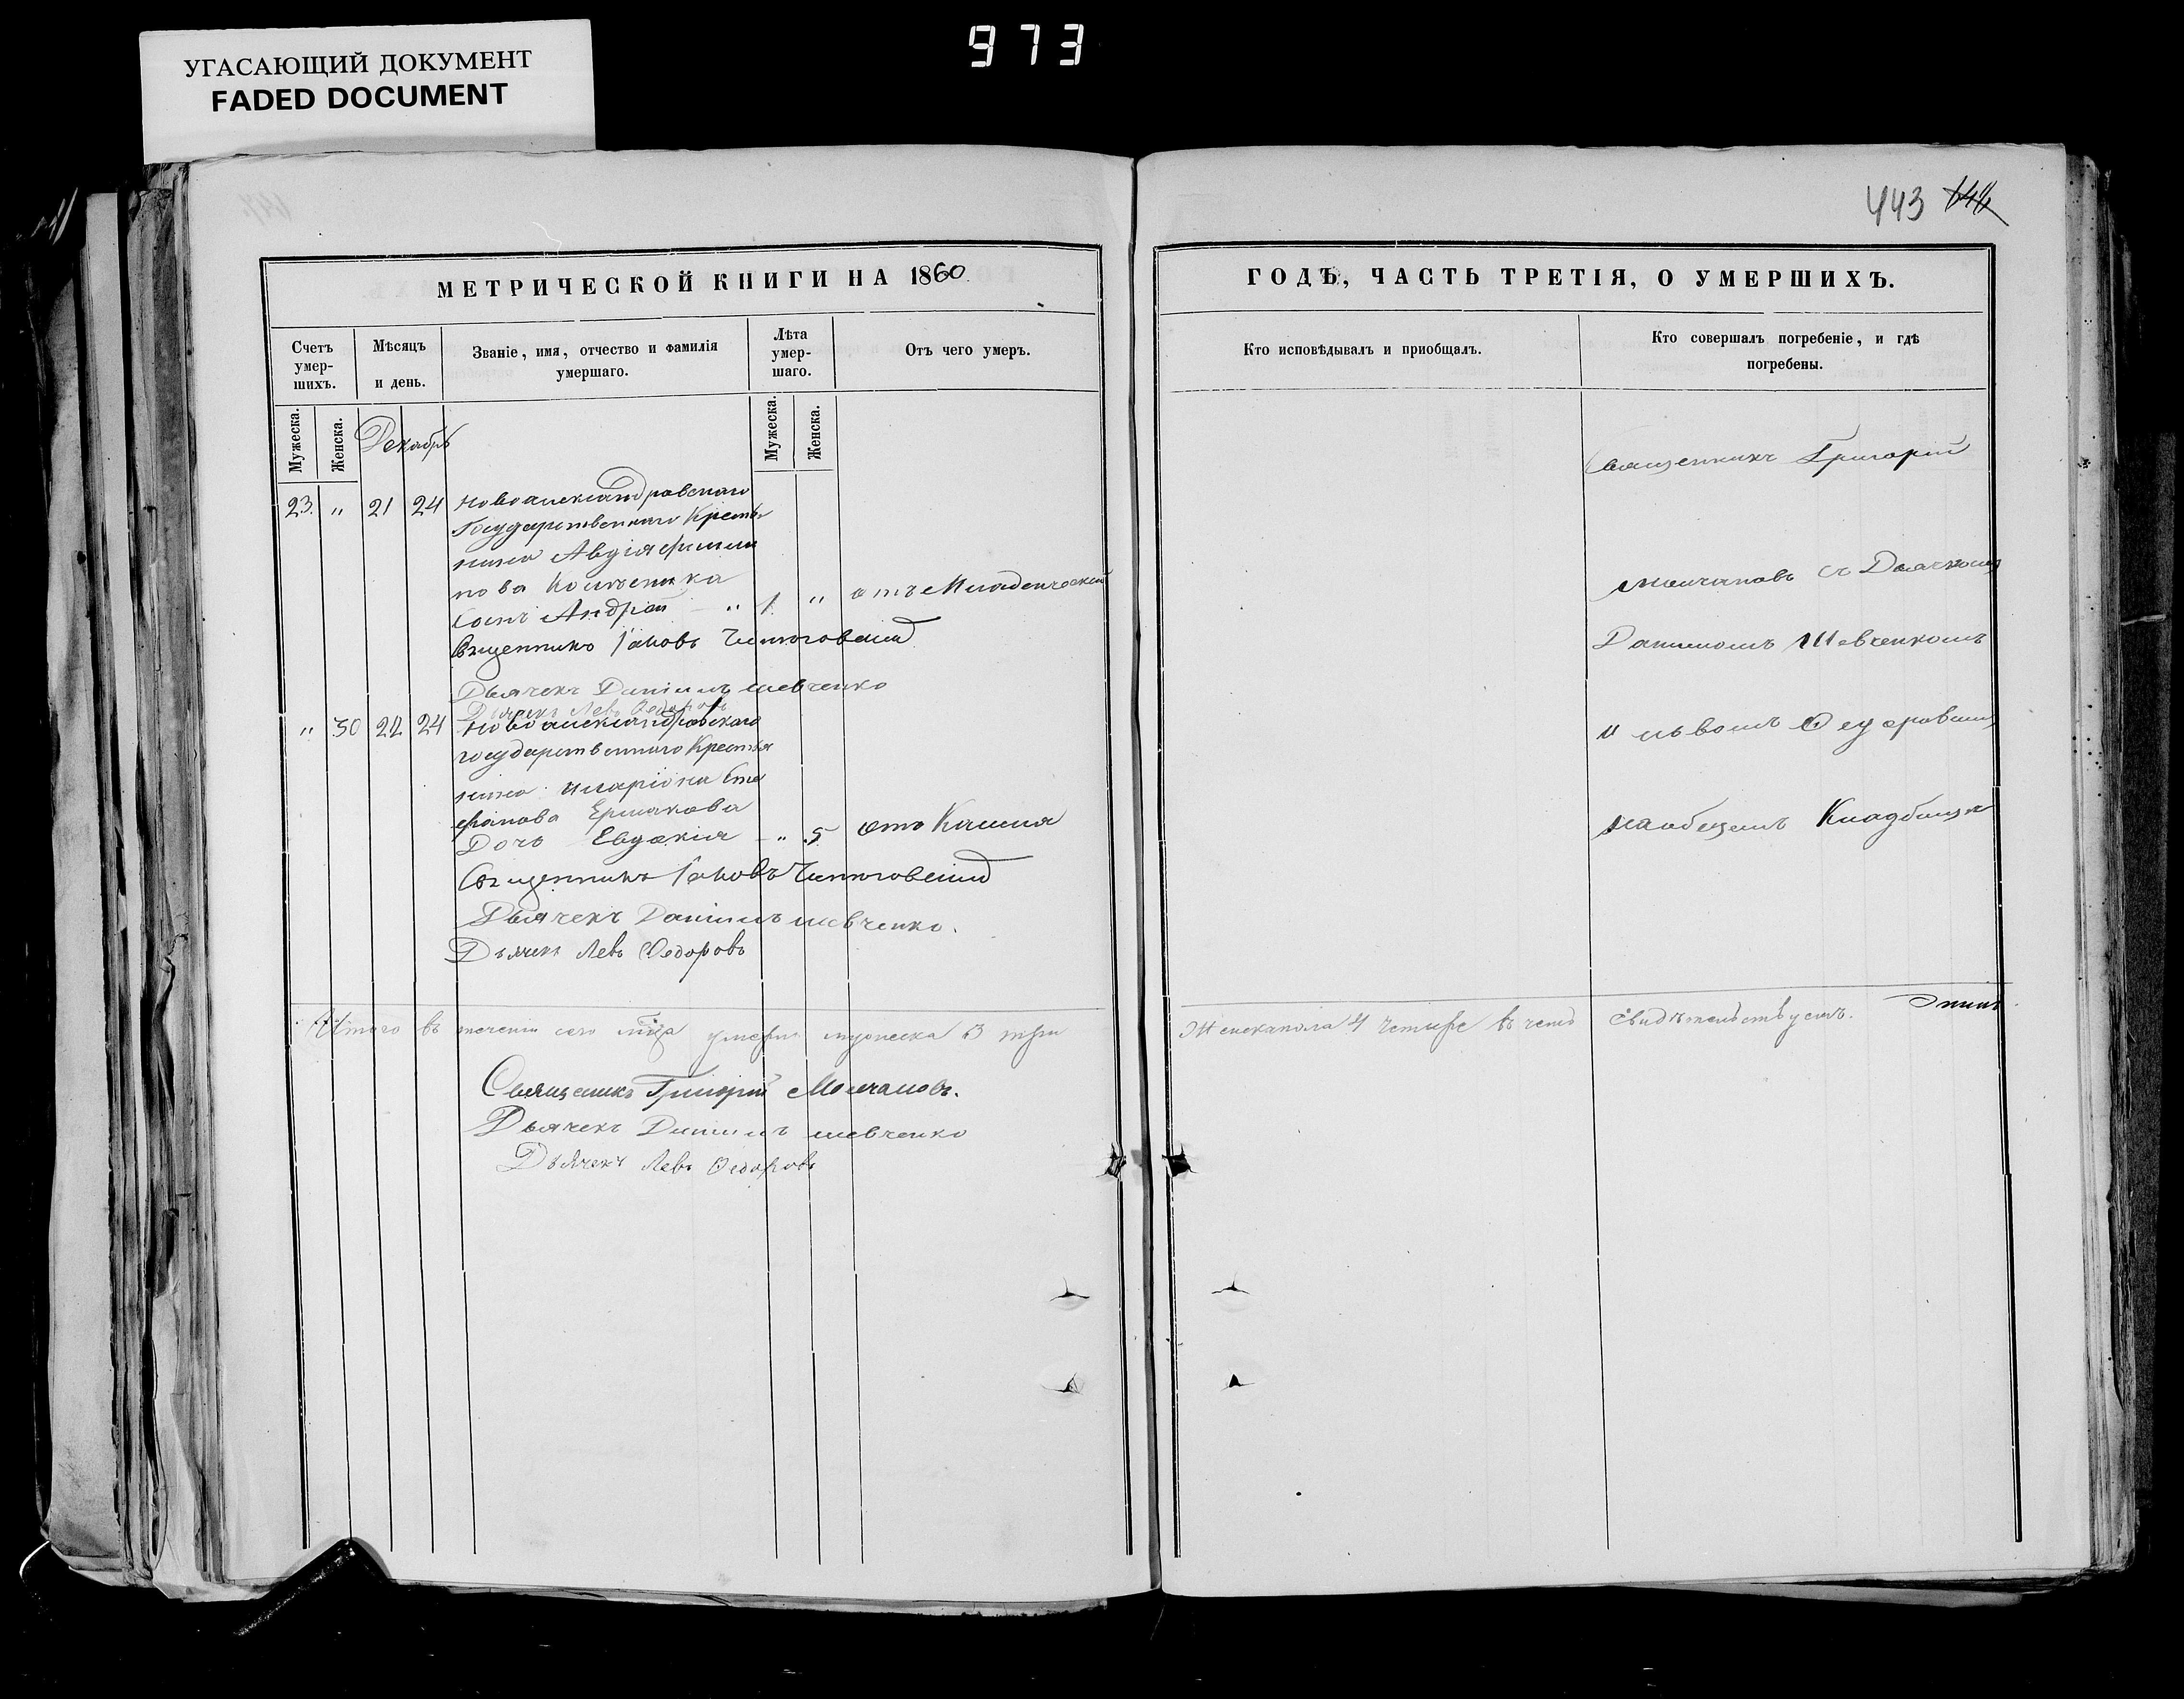 973
УГАСАЮЩИЙ ДОКУМЕНТ
FADED DOCUMENT
443
МЕТРИЧЕСКОЙ КНИГИ НА 1860.
Счетъ умер- шихъ.
Мѣсяцъ и день.
Званіе, имя, отчество и фамилія умершаго.
Лѣта умер- шаго.
Отъ чего умеръ.
Мужеска. Женска. Декабрь Мужеска. Женска.
23. " 21 24 Новоалександровскаго
Государственнаго Кресть
янина Авдія
нова
Сынъ Андрей " 1 " отъ Младенческой
Священникъ Іаковъ
Дьячекъ Даніилъ Шевченко
Дьячекъ Левъ Ѳедоровъ
" 30 22 24 Новоалександровскаго
государственнаго Крестья
нина Иларіона Сте
фанова Ермакова
Дочь Евдокія " 5 отъ Кашля
Священникъ Іаковъ
Дьячекъ Даніилъ Шевченко.
Дьячекъ Левъ Ѳедоровъ
Итого въ теченіи сего мца умерло мужеска 3 три
Священникъ Григорій Молчановъ.
Дьячекъ Даніилъ Шевченко
Дьячекъ Левъ Ѳедоровъ
ГОДЪ, ЧАСТЬ ТРЕТІЯ, О УМЕРШИХЪ.
Кто исповѣдывалъ и приобщалъ.
Кто совершалъ погребеніе, и гдѣ погребены.
Священникъ Григорій
Молчановъ съ Дьячкомъ
Даніиломъ Шевченкомъ
и Львомъ Ѳедоровымъ
на общемъ Кладбищѣ
Женска пола 4 четыре въ чемъ свидѣтельствуемъ.